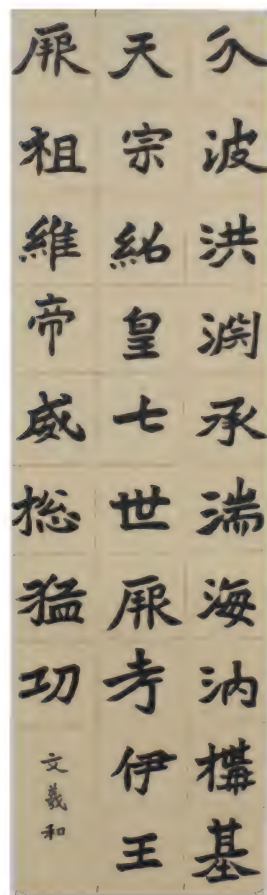 分波洪渕承湍海汭構基
天宗紹皇七世厥考伊王
厥祖維帝威捴猛功
文羲和